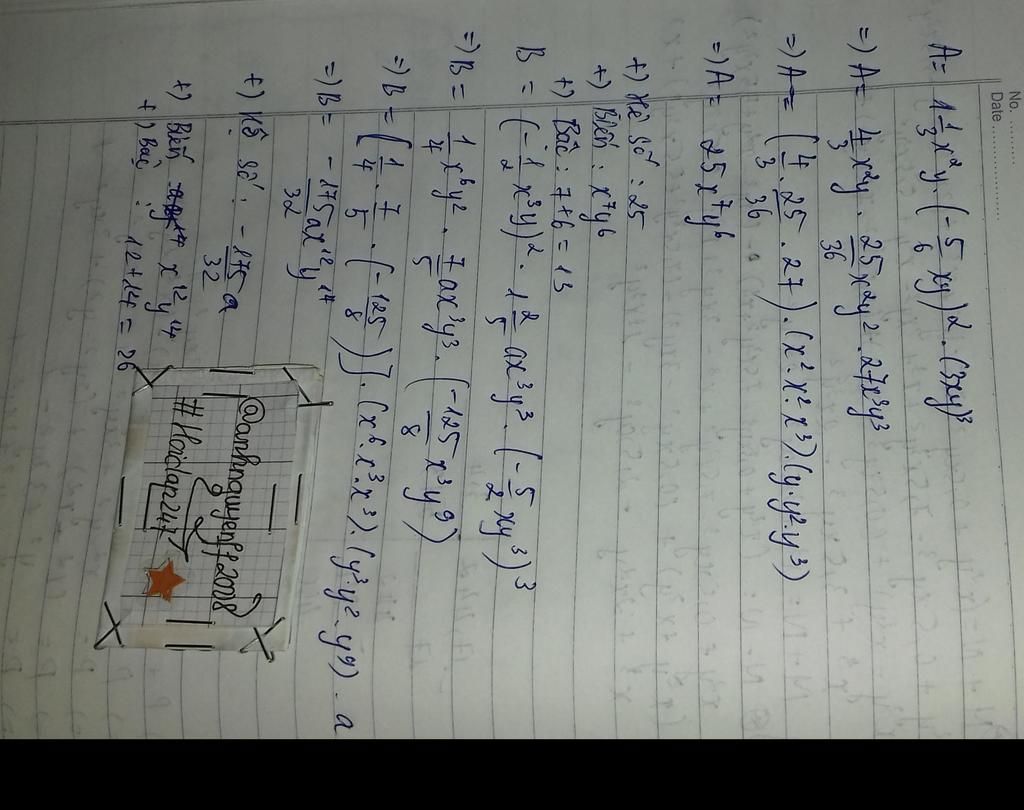 No. ..........
Date ..........
A = 1 1/3 x²y . (-5/6 xy)² . (3xy)³
=) A = 4/3 x²y . 25/36 x²y² . 27x³y³
=) A = (4/3 . 25/36 . 27) . (x² . x² . x³) . (y . y² . y³)
=) A = 25x⁷y⁶
+) Hệ số : 25
+) Biến : x⁷y⁶
+) Bậc : 7+6 = 13
B = (-1/2 x³y)² . 1 2/5 ax³y³ . (-5/2 xy³)³
=) B = 1/4 x⁶y² . 7/5 ax³y³ . (-125/8 x³y⁹)
=) B = [1/4 . 7/5 . (-125/8)] . (x⁶ . x³ . x³) . (y³ . y² . y⁹) . a
=) B = -175/32 ax¹²y¹⁴
+) Hệ số : -175/32 a
+) Biến x¹²y¹⁴
+) Bậc : 12+14 = 26
@anhnguyenff2008
#Hoidap247